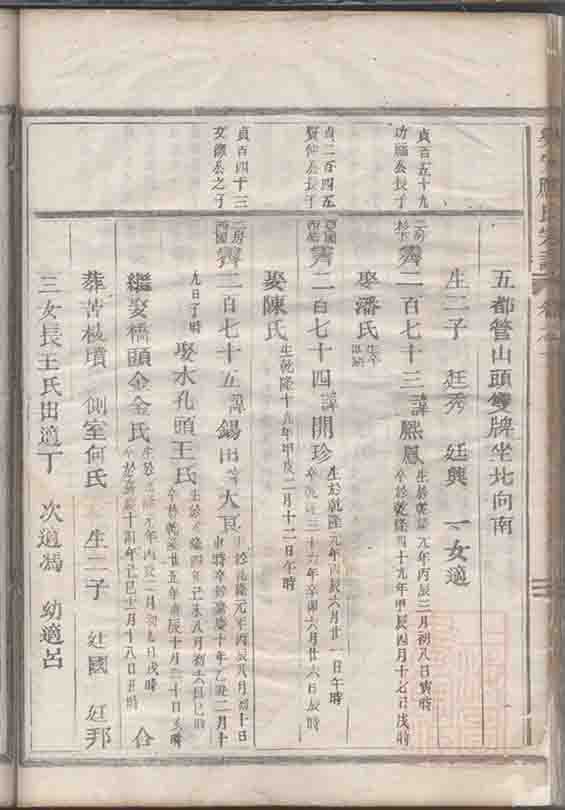 五都管山頭雙牌坐北向南
生二子 廷秀 廷興 一女適
貞百五十九
長子
霽二百七十三諱熙鳳
生於乾隆元年丙辰三月初八日寅時
卒於乾隆四十九年甲辰四月十七日戌時
娶潘氏
貞二百四五
賢仲公長子
霽二百七十四諱開珍
生於乾隆元年丙辰六月廿一日午時
卒乾隆三十六年辛卯六月廿六日辰時
娶陳氏
生乾隆十九年甲戌二月十二日午時
貞百四十三
文德公之子
二房
霽二百七十五諱錫田
大頁
乾隆元年丙辰八月初十日
十年乙丑二月十
九日子時
娶水孔頭王氏
四年己未八月初六日巳時
廿五年庚辰十月三十日亥時
繼娶橋頭金金氏
元年丙辰二月初九日戌時
十四年己巳十一月十八日丑時
合
葬苦枝墳 側室何氏 生二子 廷國 廷邦
三女長王氏田適丁 次適馮 幼適呂